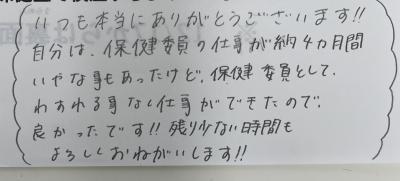 いつも本当にありがとうございます!!
自分は、保健委員の仕事が約4カ月間
いやな事もあったけど、保健委員として、
われる事なく仕事ができたので、
良かったです!! 残り少ない時間も
よろしくおねがいします!!